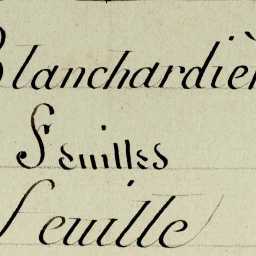 Blanchardièr
Feuilles
feuille